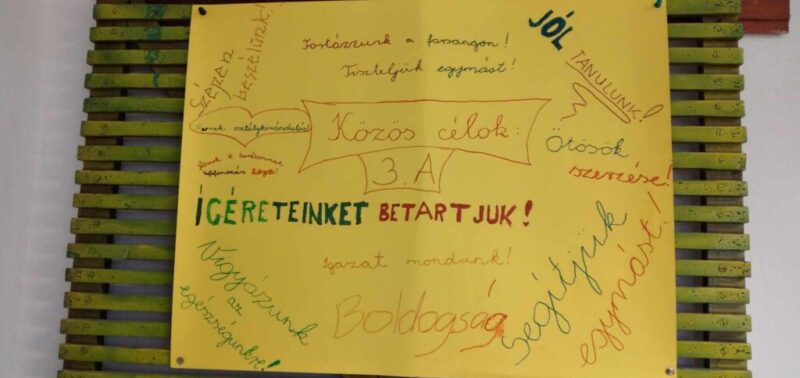 Szépen
beszélünk!
Tortázzunk a farsangon!
Tiszteljük egymást!
JÓL
TANULUNK!
osztálykirándulás!
Közös célok:
3. A
Ötösök
szerzése!
ÍGÉRETEINKET BETARTJUK!
Vigyázunk
az
egészségünkre!
Igazat mondunk!
Boldogság
Segítjük
egymást!